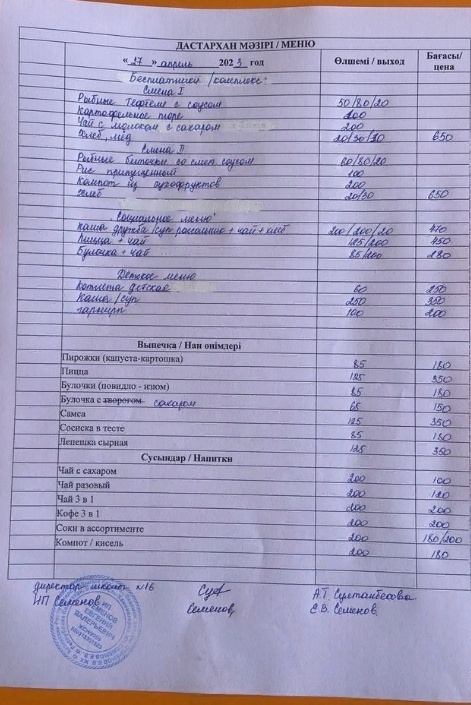 ДАСТАРХАН МӘЗІРІ / МЕНЮ
« 27 » апрель 2023 год Өлшемі / выход Бағасы/ цена
Бесплатники /комплекс
Смена I
Рыбные тефтели с соусом 50/80/20
Картофельное пюре 200
Чай с молоком с сахаром 200
Хлеб, мёд 20/30/10 650
Смена II
Рыбные биточки со смет соусом 60/80/20
Рис припущенный 100
Компот из сухофруктов 200
Хлеб 20/30 650
"Социальное меню"
Каша дружба /суп рассольник + чай + хлеб 200/200/20 470
Пицца + чай 125/200 450
Булочка + чай 85/200 280
Детское меню
Котлета детская 60 250
Каша /суп 250 350
гарнир 100 200
Выпечка / Нан өнімдері
Пирожки (капуста-картошка) 85 180
Пицца 125 350
Булочки (повидло - изюм) 85 180
Булочка с творогом сахаром 65 150
Самса 125 350
Сосиска в тесте 85 180
Лепешка сырная 125 350
Сусындар / Напитки
Чай с сахаром 200 100
Чай разовый 200 120
Чай 3 в 1 200 200
Кофе 3 в 1 200 200
Соки в ассортименте 200 180/200
Компот / кисель 200 180
директор школы №16 А.Т. Султанбекова
ИП Семенов Семенов Е.В. Семенов